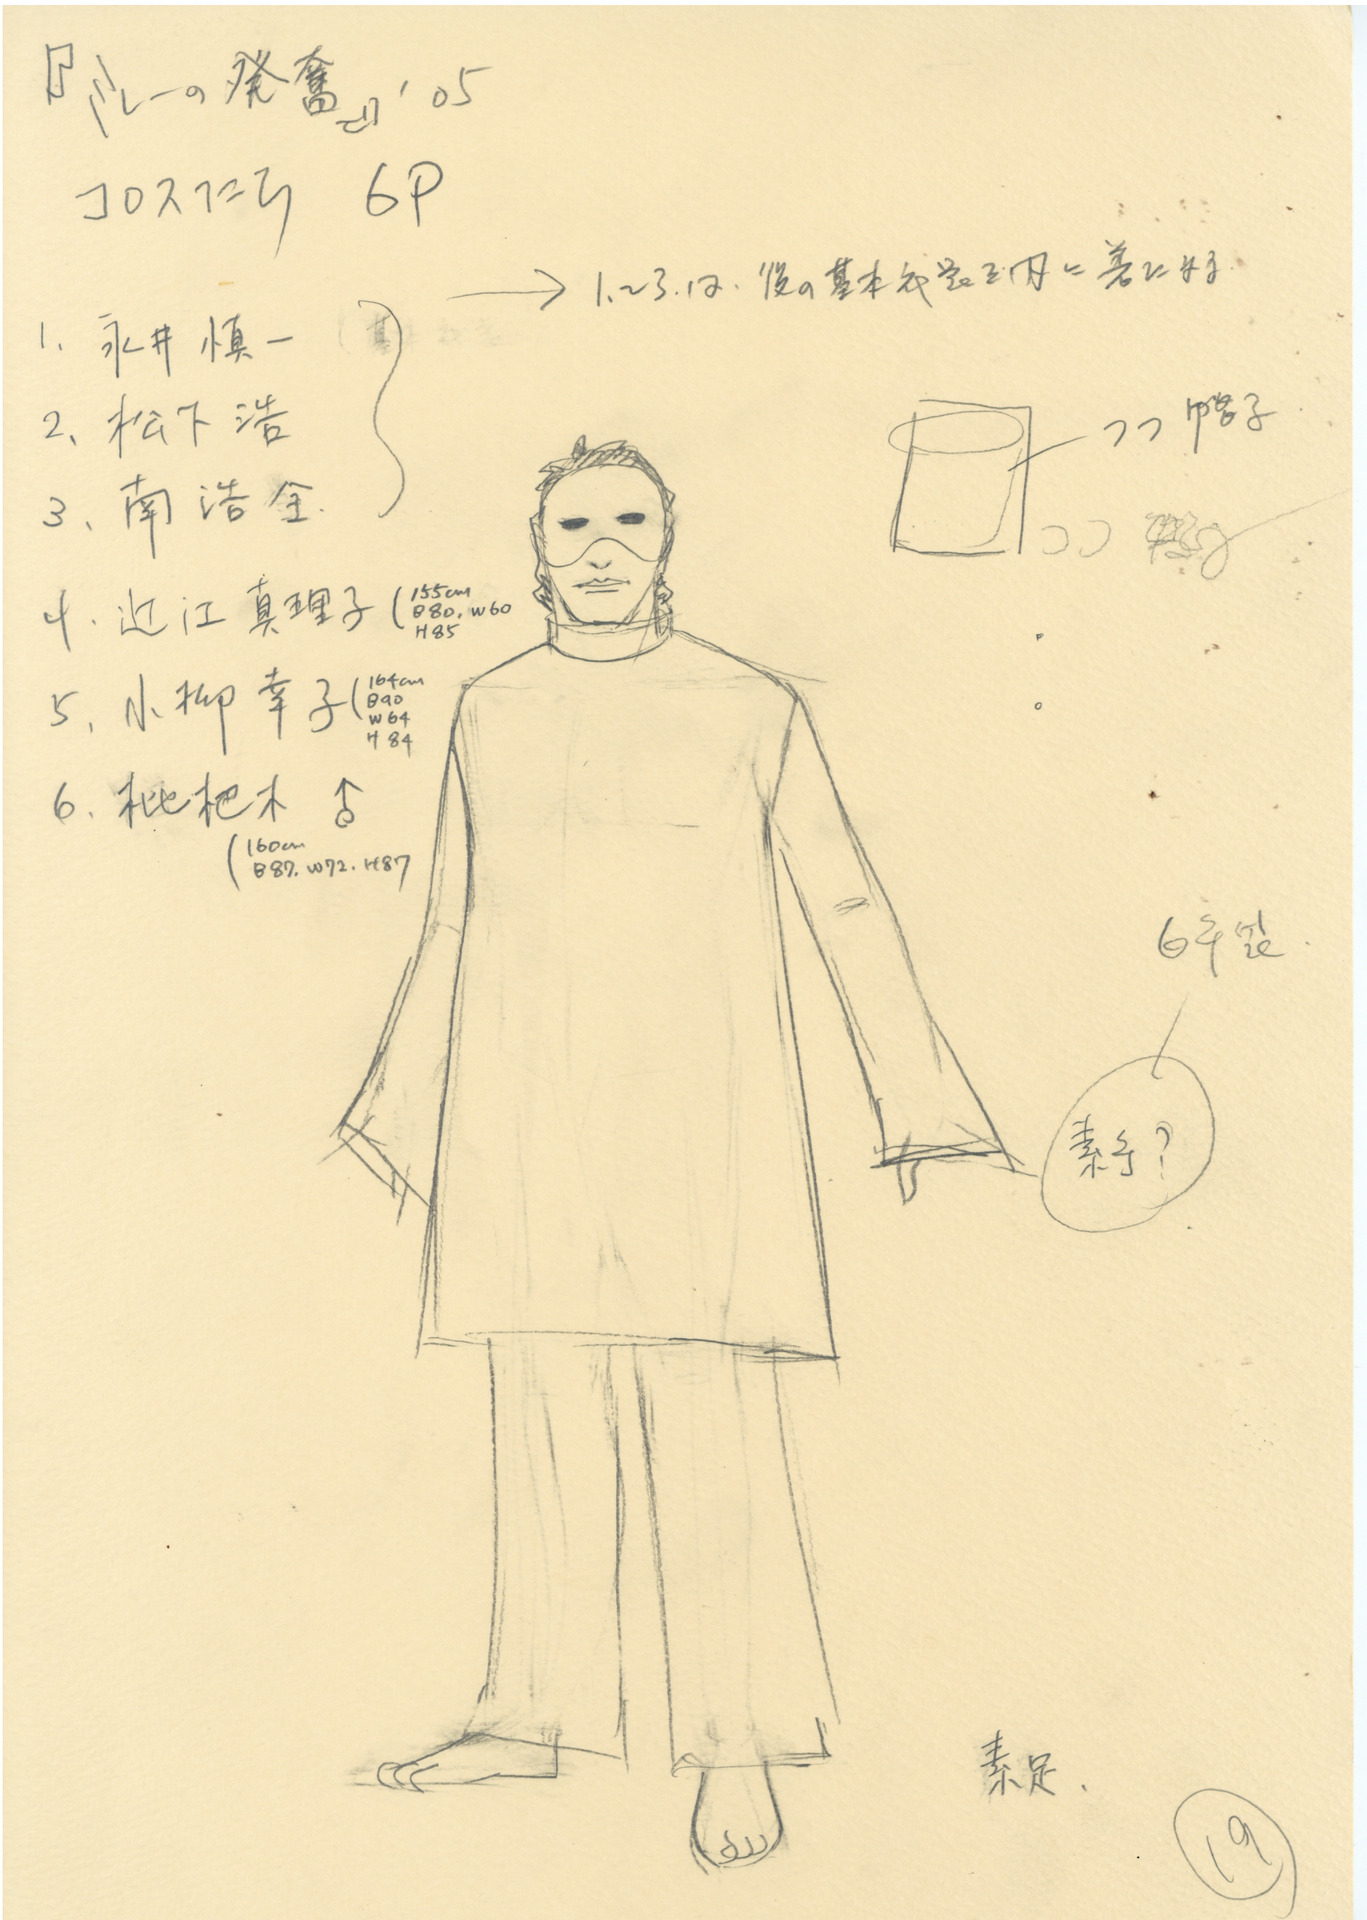 『ミレーの発奮』'05
コロスたち 6P
→ 1.2.3.は、後の基本衣装を内に着こなす
1. 永井 慎一
2. 松下 浩
3. 南 浩全
4. 近江 真理子 (155cm
B80. W60
H85
5. 小柳 幸子 (164cm
B90
W64
H84
6. 枇杷木
(160cm
B87. W72. H87
つつ帽子
つつ
6手袋.
素手?
素足.
19